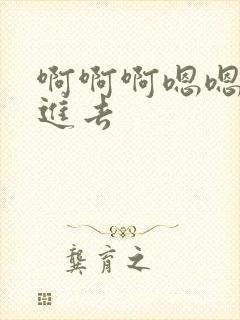 啊啊啊嗯嗯
進去
龔育之